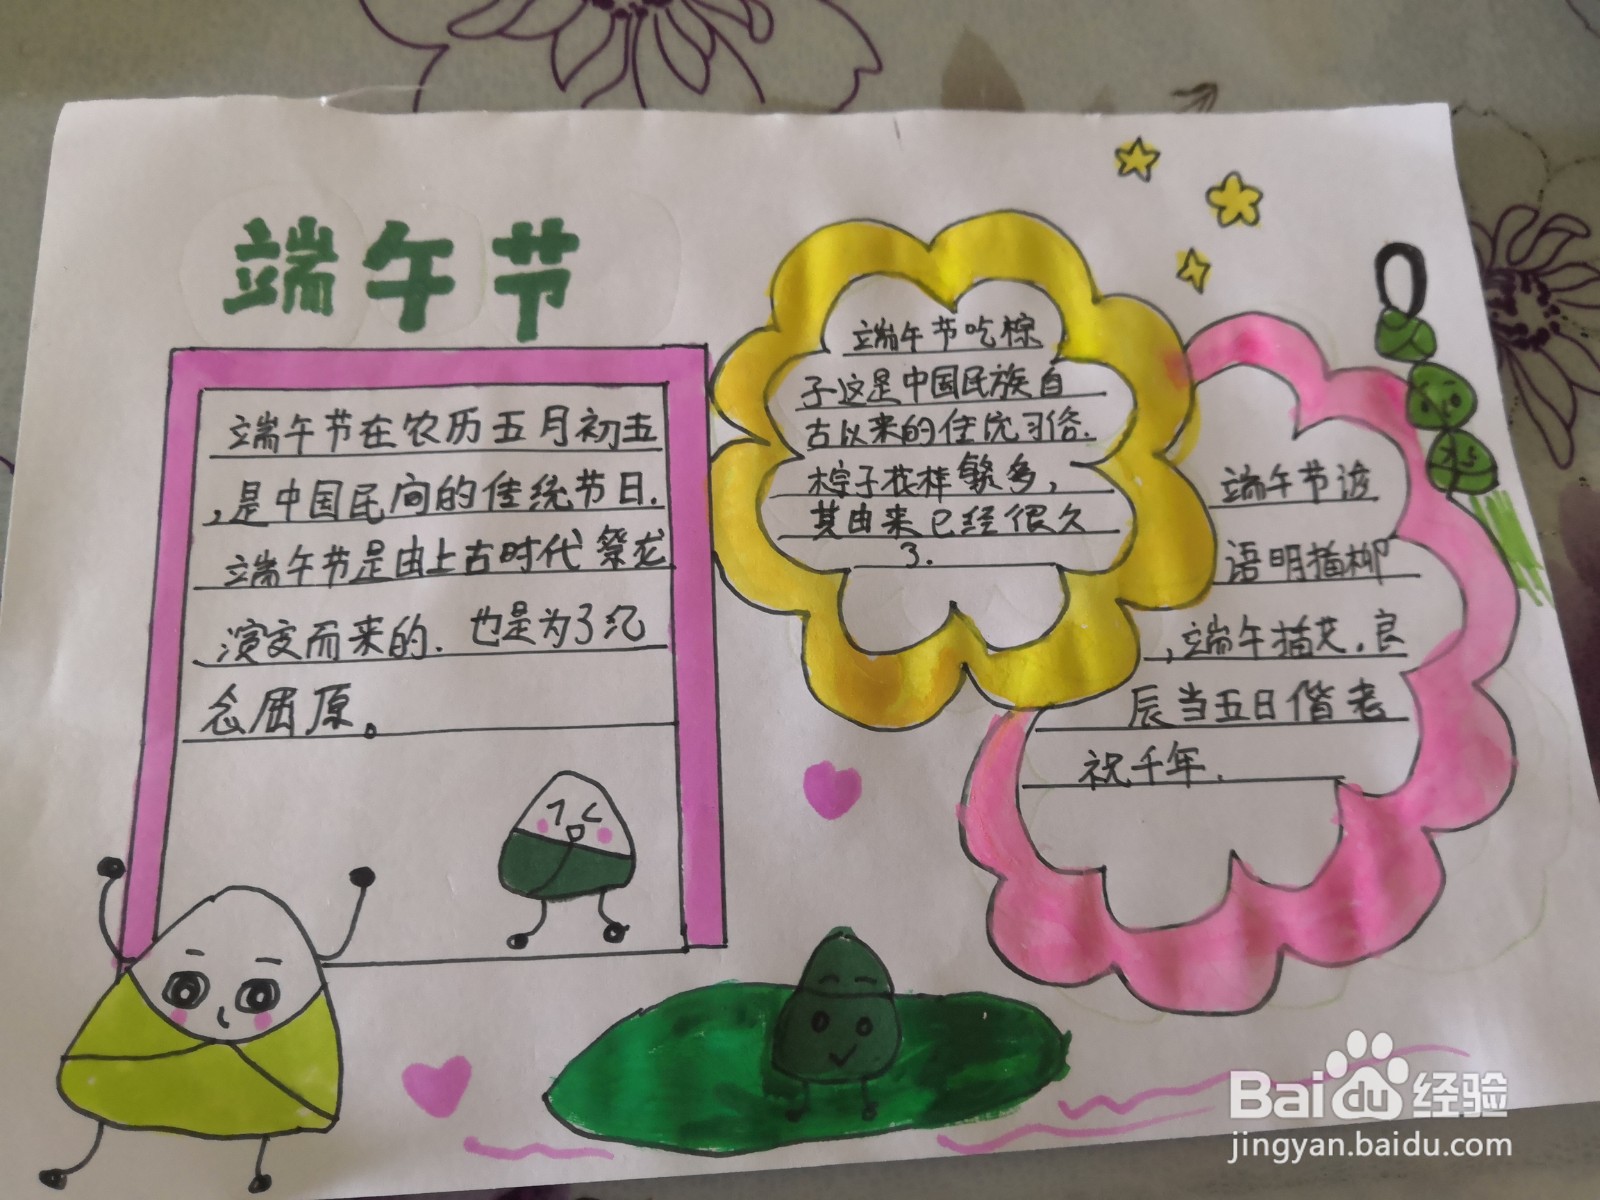 端午节
端午节在农历五月初五
,是中国民间的佳统节日.
端午节是由上古时代祭龙
演变而来的.也是为了纪
念屈原。
端午节吃棕
子这是中国民族自
古以来的住统习俗.
粽子花样繁多,
其由来已经很久
了.
端午节谚
语明插柳
,端午插艾.良
辰当五日偕老
祝千年.
Bai du 经验
jingyan.baidu.com